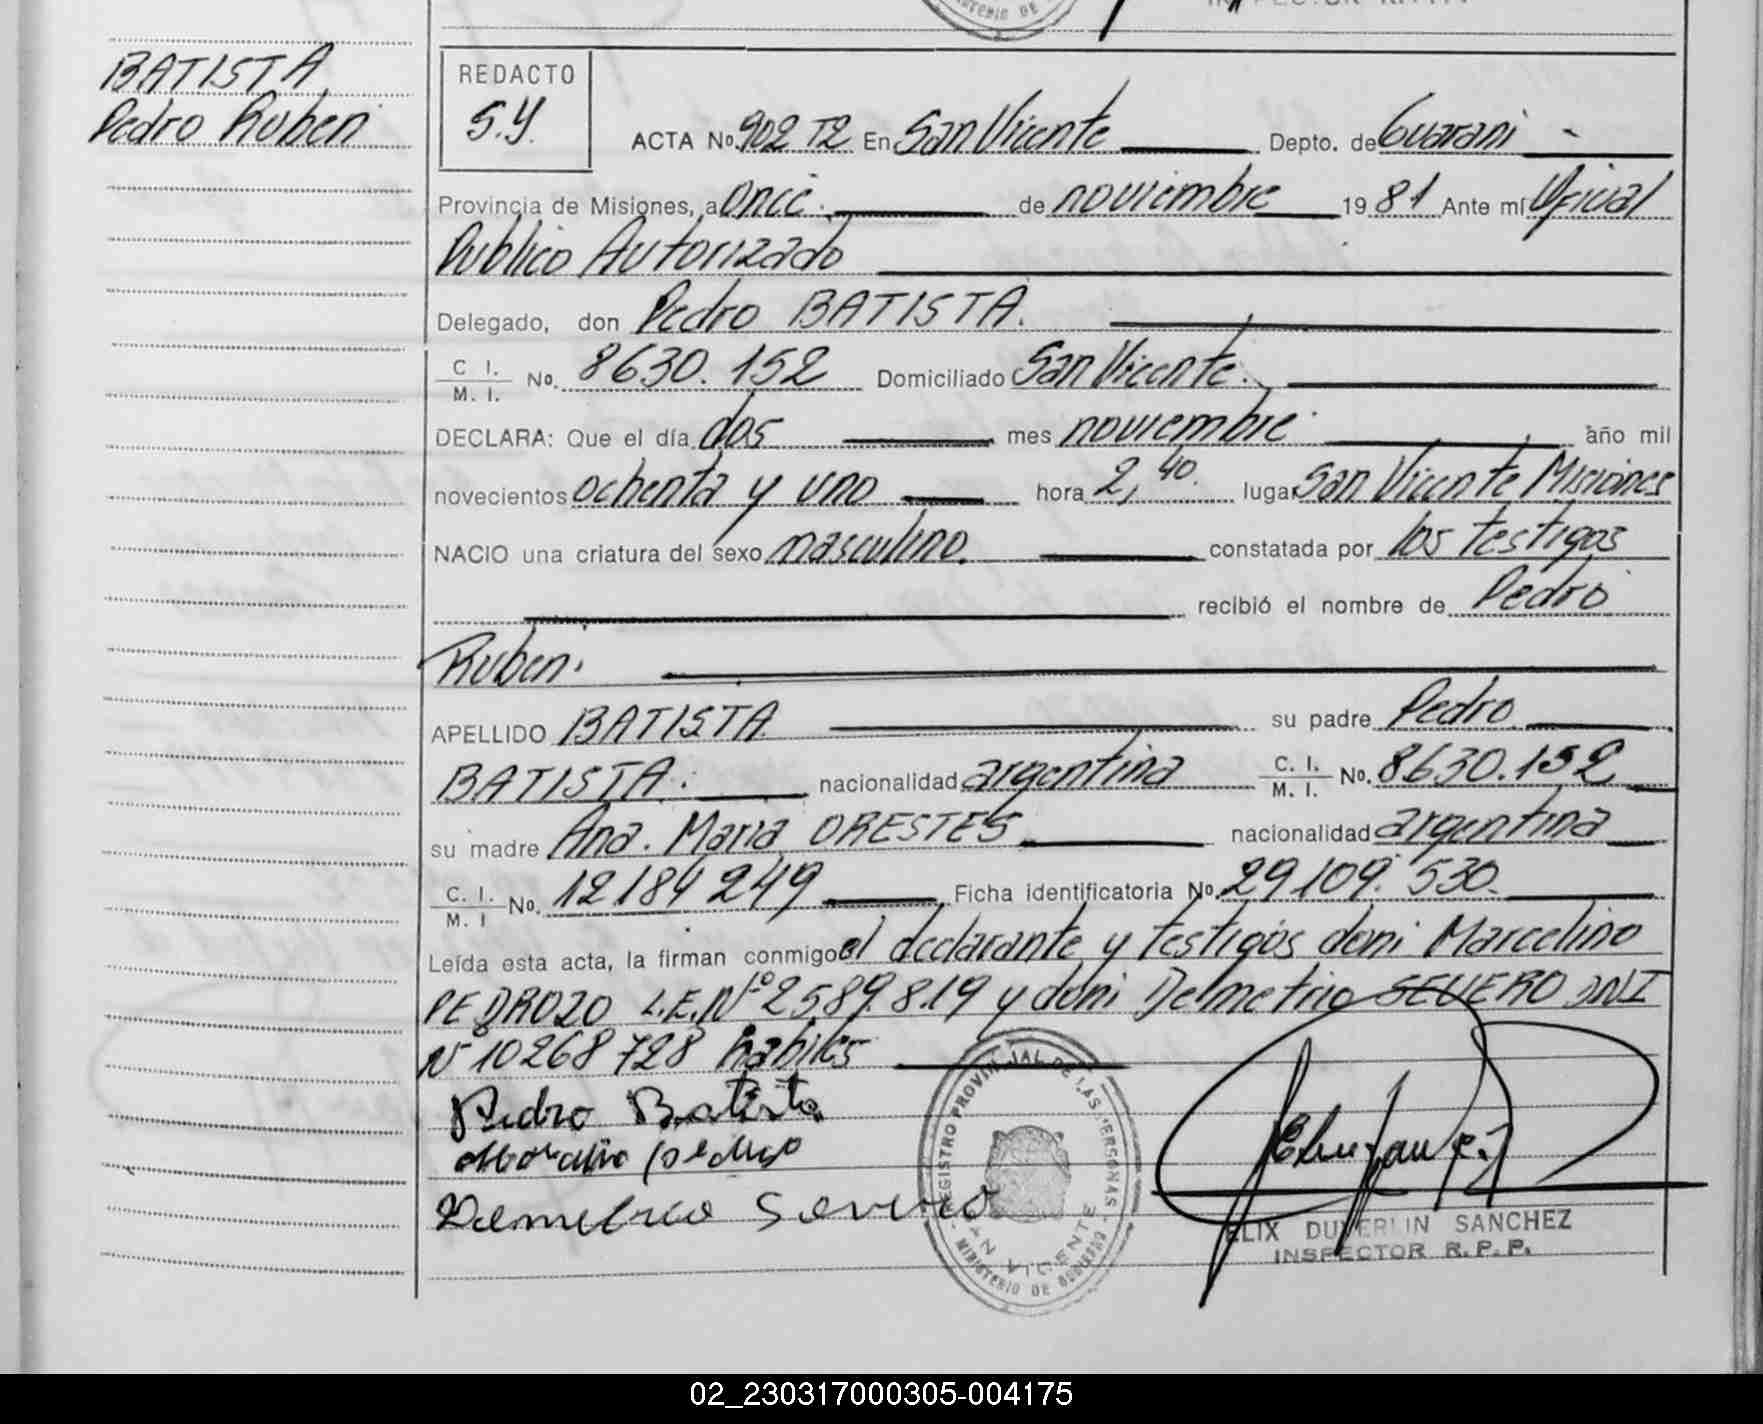 MINISTERIO DE
BATISTA
Pedro Ruben
REDACTO
S.Y.
ACTA No. 902 T2 En San Vicente Depto. de Guarani -
Provincia de Misiones, a once. de noviembre 1981 Ante mí Oficial
Publico Autorizado
Delegado, don Pedro BATISTA.
C. I. / M. I. No. 8630.152 Domiciliado San Vicente.
DECLARA: Que el día dos mes noviembre año mil
novecientos ochenta y uno hora 2,40. lugar San Vicente Misiones
NACIO una criatura del sexo masculino. constatada por los testigos
recibió el nombre de Pedro
Ruben.
APELLIDO BATISTA su padre Pedro
BATISTA. nacionalidad argentina C. I. / M. I. No. 8630.152
su madre Ana. Maria ORESTES nacionalidad argentina
C. I. / M. I No. 12184249 Ficha identificatoria No. 29109.530.
Leída esta acta, la firman conmigo el declarante y testigos doni Marcelino
PEDROZO L.E.Nº 2589.819 y doni Delmetrio SEVERO DNI
Nº 10268728 habiles
Pedro Batista
Demetrio Severo
REGISTRO PROVINCIAL DE LAS PERSONAS
SAN VICENTE
MINISTERIO DE GOBIERNO
ELIX DUVERLIN SANCHEZ
INSPECTOR R.P.P.
02_230317000305-004175